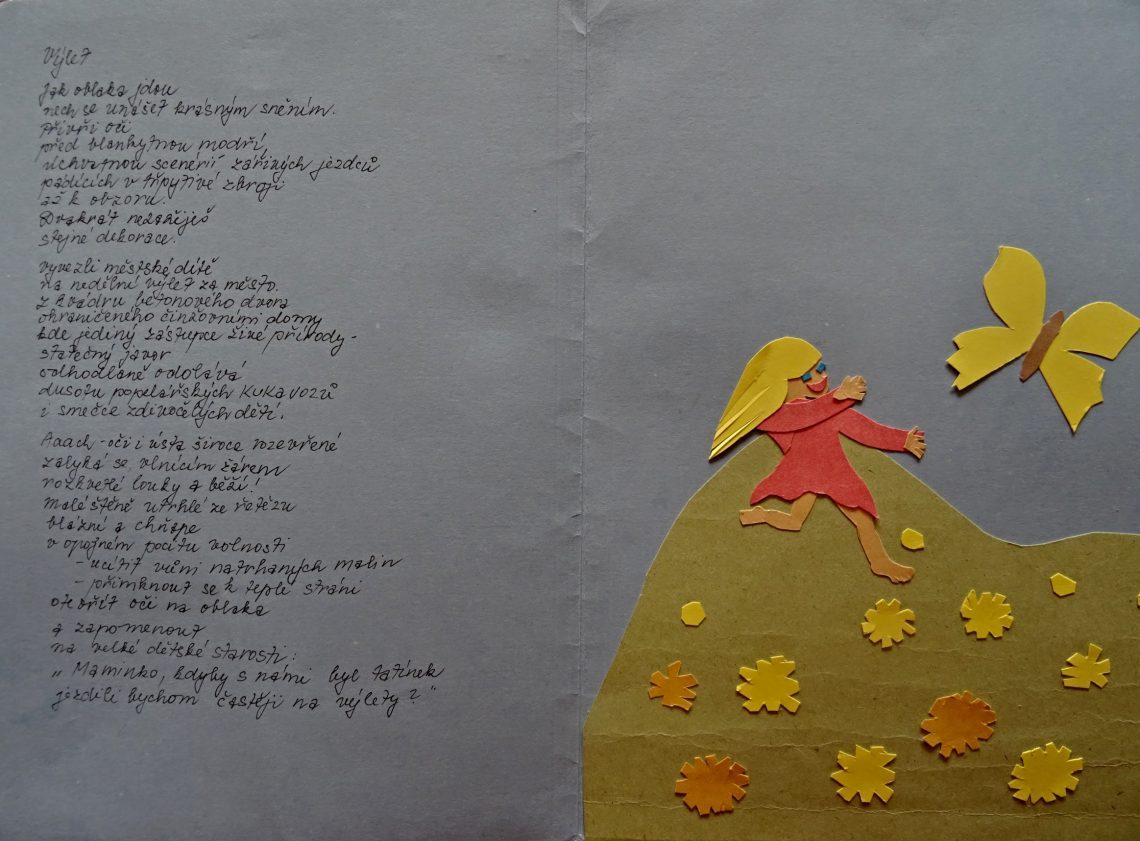 Výlet
Jak oblaka jdou
nech se unášet krásným sněním.
Přivři oči
před blankytnou modří,
úchvatnou scenérií zářivých jezdců
pádících v třpytivé zbroji
až k obzoru.
Dvakrát nezažiješ
stejné dekorace.
Vyvezli městské dítě
na nedělní výlet za město.
Z kvádru betonového dvora
ohraničeného činžovními domy
kde jediný zástupce živé přírody -
statečný javor
odhodlaně odolává
dusotu popelářských KUKA vozů
i smečce zdivočelých dětí.
Aaach - oči i ústa široce rozevřené
zalyká se vlnícím žárem
rozkvetlé louky a běží!
Malé štěně utrhlé ze řetězu
blázní a chňape
v opojném pocitu volnosti
- ucítit vůni natrhaných malin
- přimknout se k teplé stráni
otevřít oči na oblaka
a zapomenout
na velké dětské starosti:
„Maminko, kdyby s námi byl tatínek
jezdili bychom častěji na výlety?"